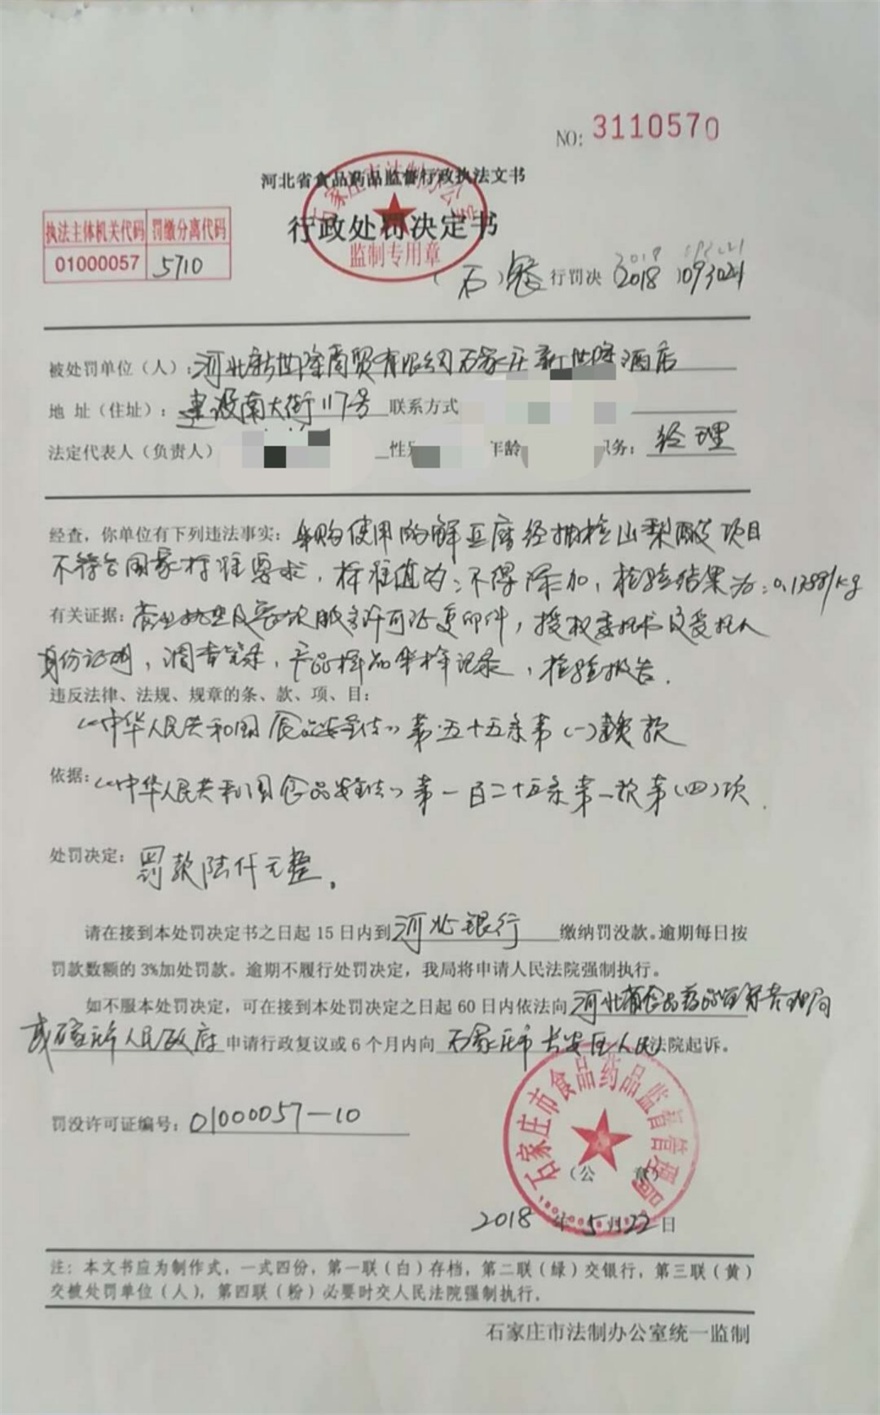 NO: 3110570
河北省食品药品监督行政执法文书
行政处罚决定书
石家庄市法制办公室
监制专用章
执法主体机关代码 罚缴分离代码
01000057 5710
(石)食 行罚决 (2018)093021
被处罚单位(人):河北新世隆商贸有限公司石家庄新世隆酒店
地 址(住址):建设南大街117号 联系方式
法定代表人(负责人) 性别 年龄 职务:经理
经查,你单位有下列违法事实:采购使用的鲜豆腐经抽检山梨酸项目
不符合国家标准要求,标准值为:不得添加,检验结果为:0.138g/kg
有关证据:营业执照及餐饮服务许可证复印件,授权委托书及受托人
身份证明,调查笔录,产品样品采样记录,检验报告.
违反法律、法规、规章的条、款、项、目:
《中华人民共和国食品安全法》第五十五条第(一)款
依据:《中华人民共和国食品安全法》第一百二十五条第一款第(四)项.
处罚决定:罚款陆仟元整.
请在接到本处罚决定书之日起15日内到河北银行缴纳罚没款。逾期每日按
罚款数额的3%加处罚款。逾期不履行处罚决定,我局将申请人民法院强制执行。
如不服本处罚决定,可在接到本处罚决定之日起60日内依法向河北省食品药品监督管理局
或石家庄市人民政府申请行政复议或6个月内向石家庄市长安区人民法院起诉。
罚没许可证编号:01000057-10
石家庄市食品药品监督管理局
(公 章)
2018年5月22日
注:本文书应为制作式,一式四份,第一联(白)存档,第二联(绿)交银行,第三联(黄)
交被处罚单位(人),第四联(粉)必要时交人民法院强制执行.
石家庄市法制办公室统一监制